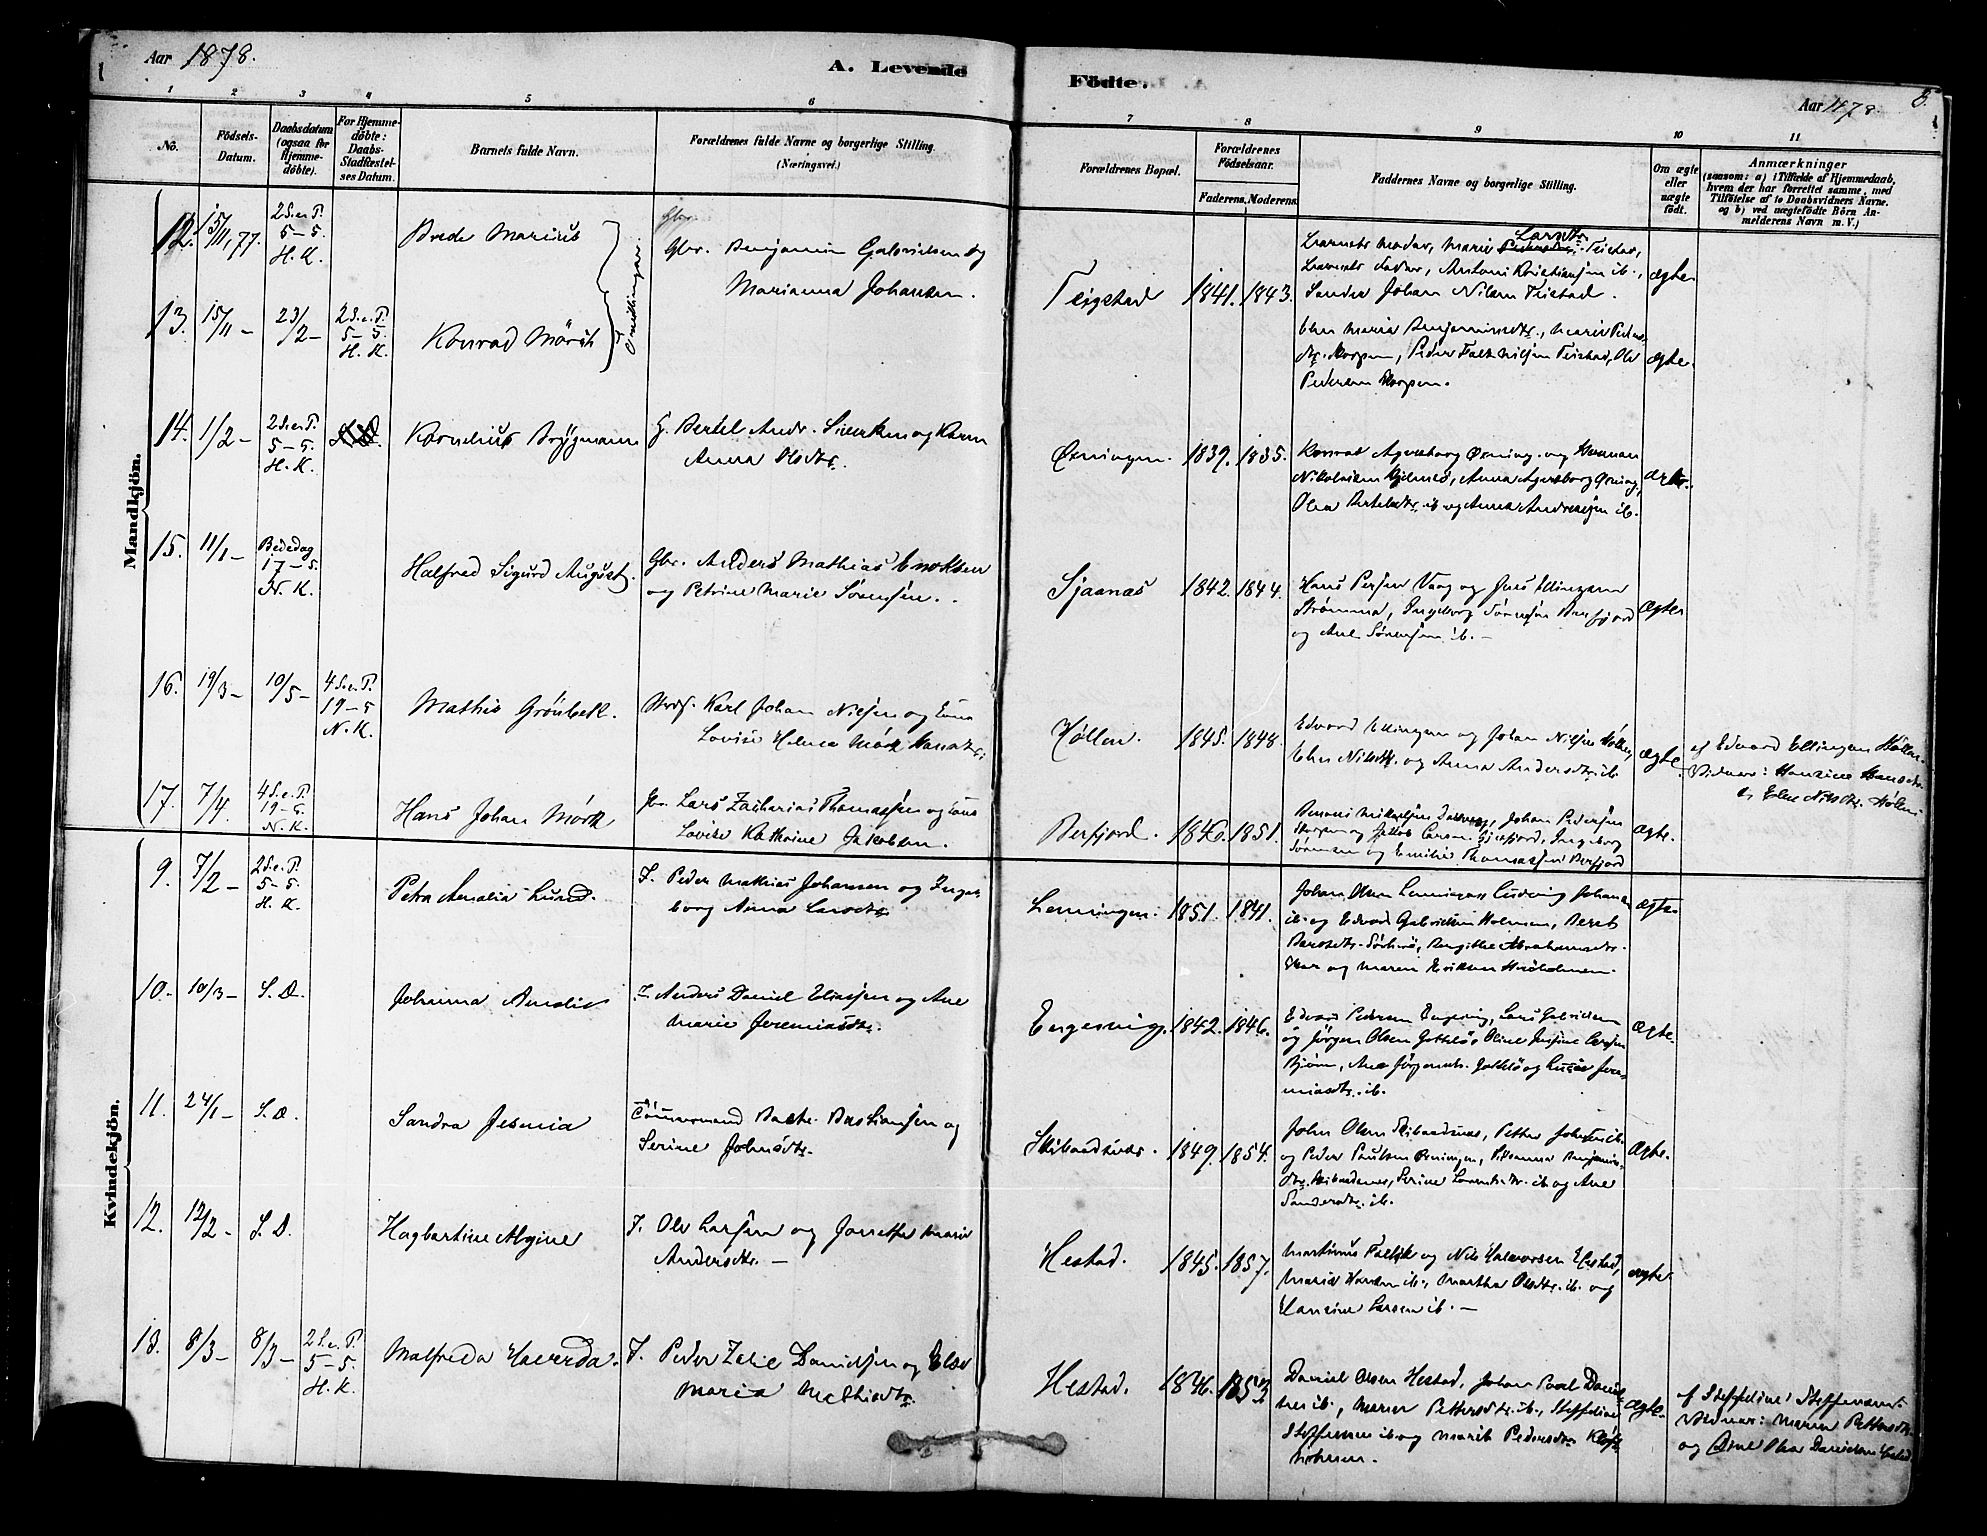 Aar 1878.
A. Levende
Födte.
Aar 1878
8.
1 2 3 4 5 6 7 8 9 10 11
No.
Födsels-
Datum.
Daabsdatum
(ogsaa for
Hjemme-
döbte).
For Hjemme-
döbte:
Daabs-
Stadfæstel-
ses Datum.
Barnets fulde Navn.
Forældrenes fulde Navne og borgerlige Stilling.
(Næringsvei.)
Forældrenes Bopæl.
Forældrenes
Födselsaar.
Faderens. Moderens.
Faddernes Navne og borgerlige Stilling.
Om ægte
eller
uægte
födt.
Anmærkninger
(saasom: a) i Tilfælde af Hjemmedaab,
hvem der har forrettet samme, med
Tilföielse af to Daabsvidners Navne.
og b) ved uægtefödte Börn An-
melderens Navn m. V.)
Mandkjön.
12. 15/11, 77.
2 S. e. P.
5-5.
H. K.
Brede Marius
Gbr. Benjamin Gabrielsen og
Marianna Johansen.
Teigstad 1841. 1843.
Barnets Moder, Marie Larsdtr. Teistad,
Barnets Fader, Antoni Kristiansen ib.,
Sander Johan Nilsen Teistad.
ægte
13. 15/11 - 23/2 -
2 S. e. P.
5-5.
H. K.
Konrad Mörch
Tvillinger.
Maria Benjaminsdtr., Marie Peders-
dtr. Skorpen, Peder Falk Nilsen Teistad, Ole
Pedersen Skorpen.
ægte.
14. 1/2 -
2 S. e. P.
5-5.
H. K.
Kornelius Brygmann
Bertel Andr. Sivertsen og Karen
Anna Olsdtr.
Øxningen. 1839. 1835.
Konrad Agersborg Øxning. og Herman
Nikolaisen, Anna Agersborg Øxning,
Olea Bertelsdtr. ib og Anna Andreasen ib.
ægte.
15. 11/1 -
Bededag
17-5.
N. K.
Halfred Sigurd August.
Gbr. Anders Mathias Enoksen
og Petrine Marie Sörensen.
Sjaanæs 1842. 1844.
Hans Persen Vaag og Jens Ellingsen
Strømmen, Ingeborg Sörensen Berfjord
og Ane Sörensen ib. -
ægte
16. 19/3 - 10/5 -
4 S. e. P.
19-5
N. K.
Mathis Grönbek.
Karl Johan Nilsen og
Lovise Helmea Mörk Hansdtr.
Høllen. 1845. 1848.
Edvard Ellingsen og Johan Nilsen Høllen,
Elen Nilsdtr. og Anna Andersdtr ib
ægte.
af Edvard Ellingsen Høllen.
Vidner: Hansine Hansdtr.
og Elen Nilsdtr. Høllen.
17. 7/4.
4 S. e. P.
19-5.
N. K.
Hans Johan Mörk
Gbr. Lars Zacharias Thomassen og
Lovise Kathrine Jakobsen.
Berfjord. 1840. 1851.
Benoni Mikkelsen, Johan Pedersen
Skorpen og Jakob Larsen Gjerfjord, Ingeborg
Sörensen og Emilie Thomassen Berfjord
ægte.
Kvindekjön.
9. 7/2 -
2 S. e. P.
5-5.
H. K.
Petra Amalia Lund.
I. Peder Mathias Johansen og Inge-
borg Anna Larsdtr.
Lenningen. 1851. 1841.
Johan Olsen Lenningen, Ludvig Johansen
ib. og Edvard Gabrielsen Holmen, Berit
Birgitte Abrahamsdtr.
og Maren Eriksen
ægte
10. 10/3 - S. D.
Johanna Amalie
I. Anders Daniel Eliassen og Ane
Marie Jeremiasdtr.
Engesvig. 1842. 1846.
Edvard Pedersen Engesvig, Lars Gabrielsen
og Jörgen Olsen, Oline Larsen
Bjørn, Ane Jörgensdtr. og Jere-
miasdtr. ib.
ægte.
11. 24/1 - S. D.
Sandra Jesmia
Tömmermand Bastiansen og
Serine Johnsdtr.
Skibaadsnes. 1849. 1854.
John Olsen Skibaadsnæs, Petter Johnsen ib.
og Peder Paulsen Øxningen, Benjamins-
dtr. Skibaadsnes, Serine ib og Ane
Sandersdtr. ib.
ægte.
12. 12/2 - S. D.
Hagbartine Algine
I. Ole Larsen og Janetha Marie
Andersdtr. -
Hestad. 1845. 1857.
Martinus Falk og Nils Halvorsen Hestad,
Maria Hansen ib., Martha Olsdtr. ib. og
Hansine Larsen ib. -
ægte
13. 8/3 - 8/3 -
2 S. e. P.
5-5.
H. K.
Malfreda Haverda.
I. Peder Zakis Danielsen og Else
Maria Mathisdtr.
Hestad. 1846. 1853
Daniel Olsen Hestad, Johan Paal Daniel-
sen ib., Maren Pettersdtr. ib., Steffeline
Steffensen ib og Marit Pedersdtr.
ægte.
af Steffeline Steffensen.
Vidner: Maren Pettersdtr.
og Olea Danielsen Hestad